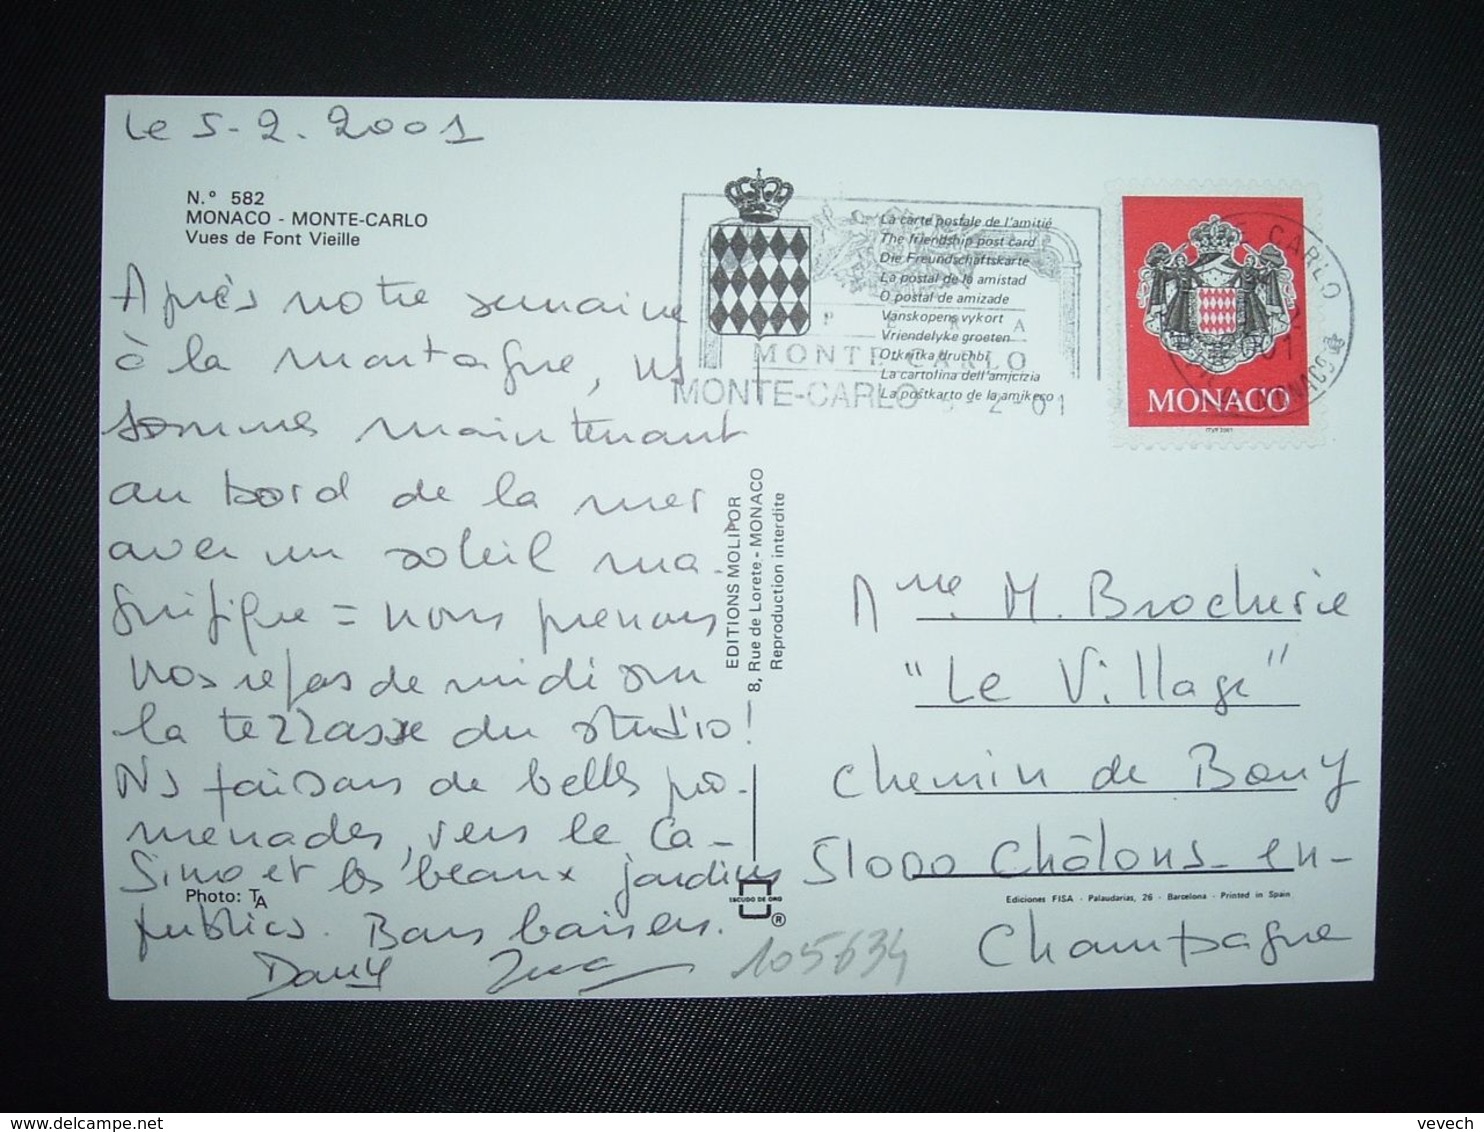 Le 5-2.2001
N.º 582
MONACO - MONTE-CARLO
Vues de Font Vieille
Après notre semaine
à la montagne, ns
sommes maintenant
au bord de la mer
avec un soleil ma-
gnifique = nous prenons
nos repas de midi sur
la terrasse du studio!
Ns faisons de belles pro-
menades, vers le Ca-
sino et les beaux jardins
publics. Bons baisers.
Dany
Photo: TA
La carte postale de l'amitié
The friendship post card
Die Freundschaftskarte
La postal de la amistad
O postal de amizade
Vanskopens vykort
Vriendelyke groeten
Otkritka druchbi
La cartolina dell'amicizia
La postkarto de la amikeco
OPERA
MONTE CARLO
MONTE-CARLO 5-2-01
MONACO
ITVF 2001
MONTE CARLO
MONACO
EDITIONS MOLIPOR
8, Rue de Lorete - MONACO
Reproduction interdite
ESCUDO DE ORO
®
Mme. M. Brocherie
"Le Village"
Chemin de Bouy
51000 Châlons-en-
Champagne
Ediciones FISA - Palaudarias, 26 - Barcelona - Printed in Spain
105634
delcampe.net
vevech